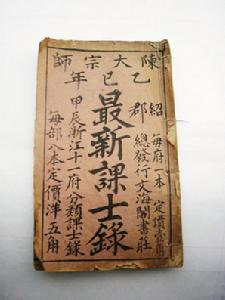 陳大宗師
乙巳年
紹郡
每府一本 定價壹角
總發行文海閣書莊
最新課士錄
甲辰浙江十一府分類課士錄
每部八本定價洋五角